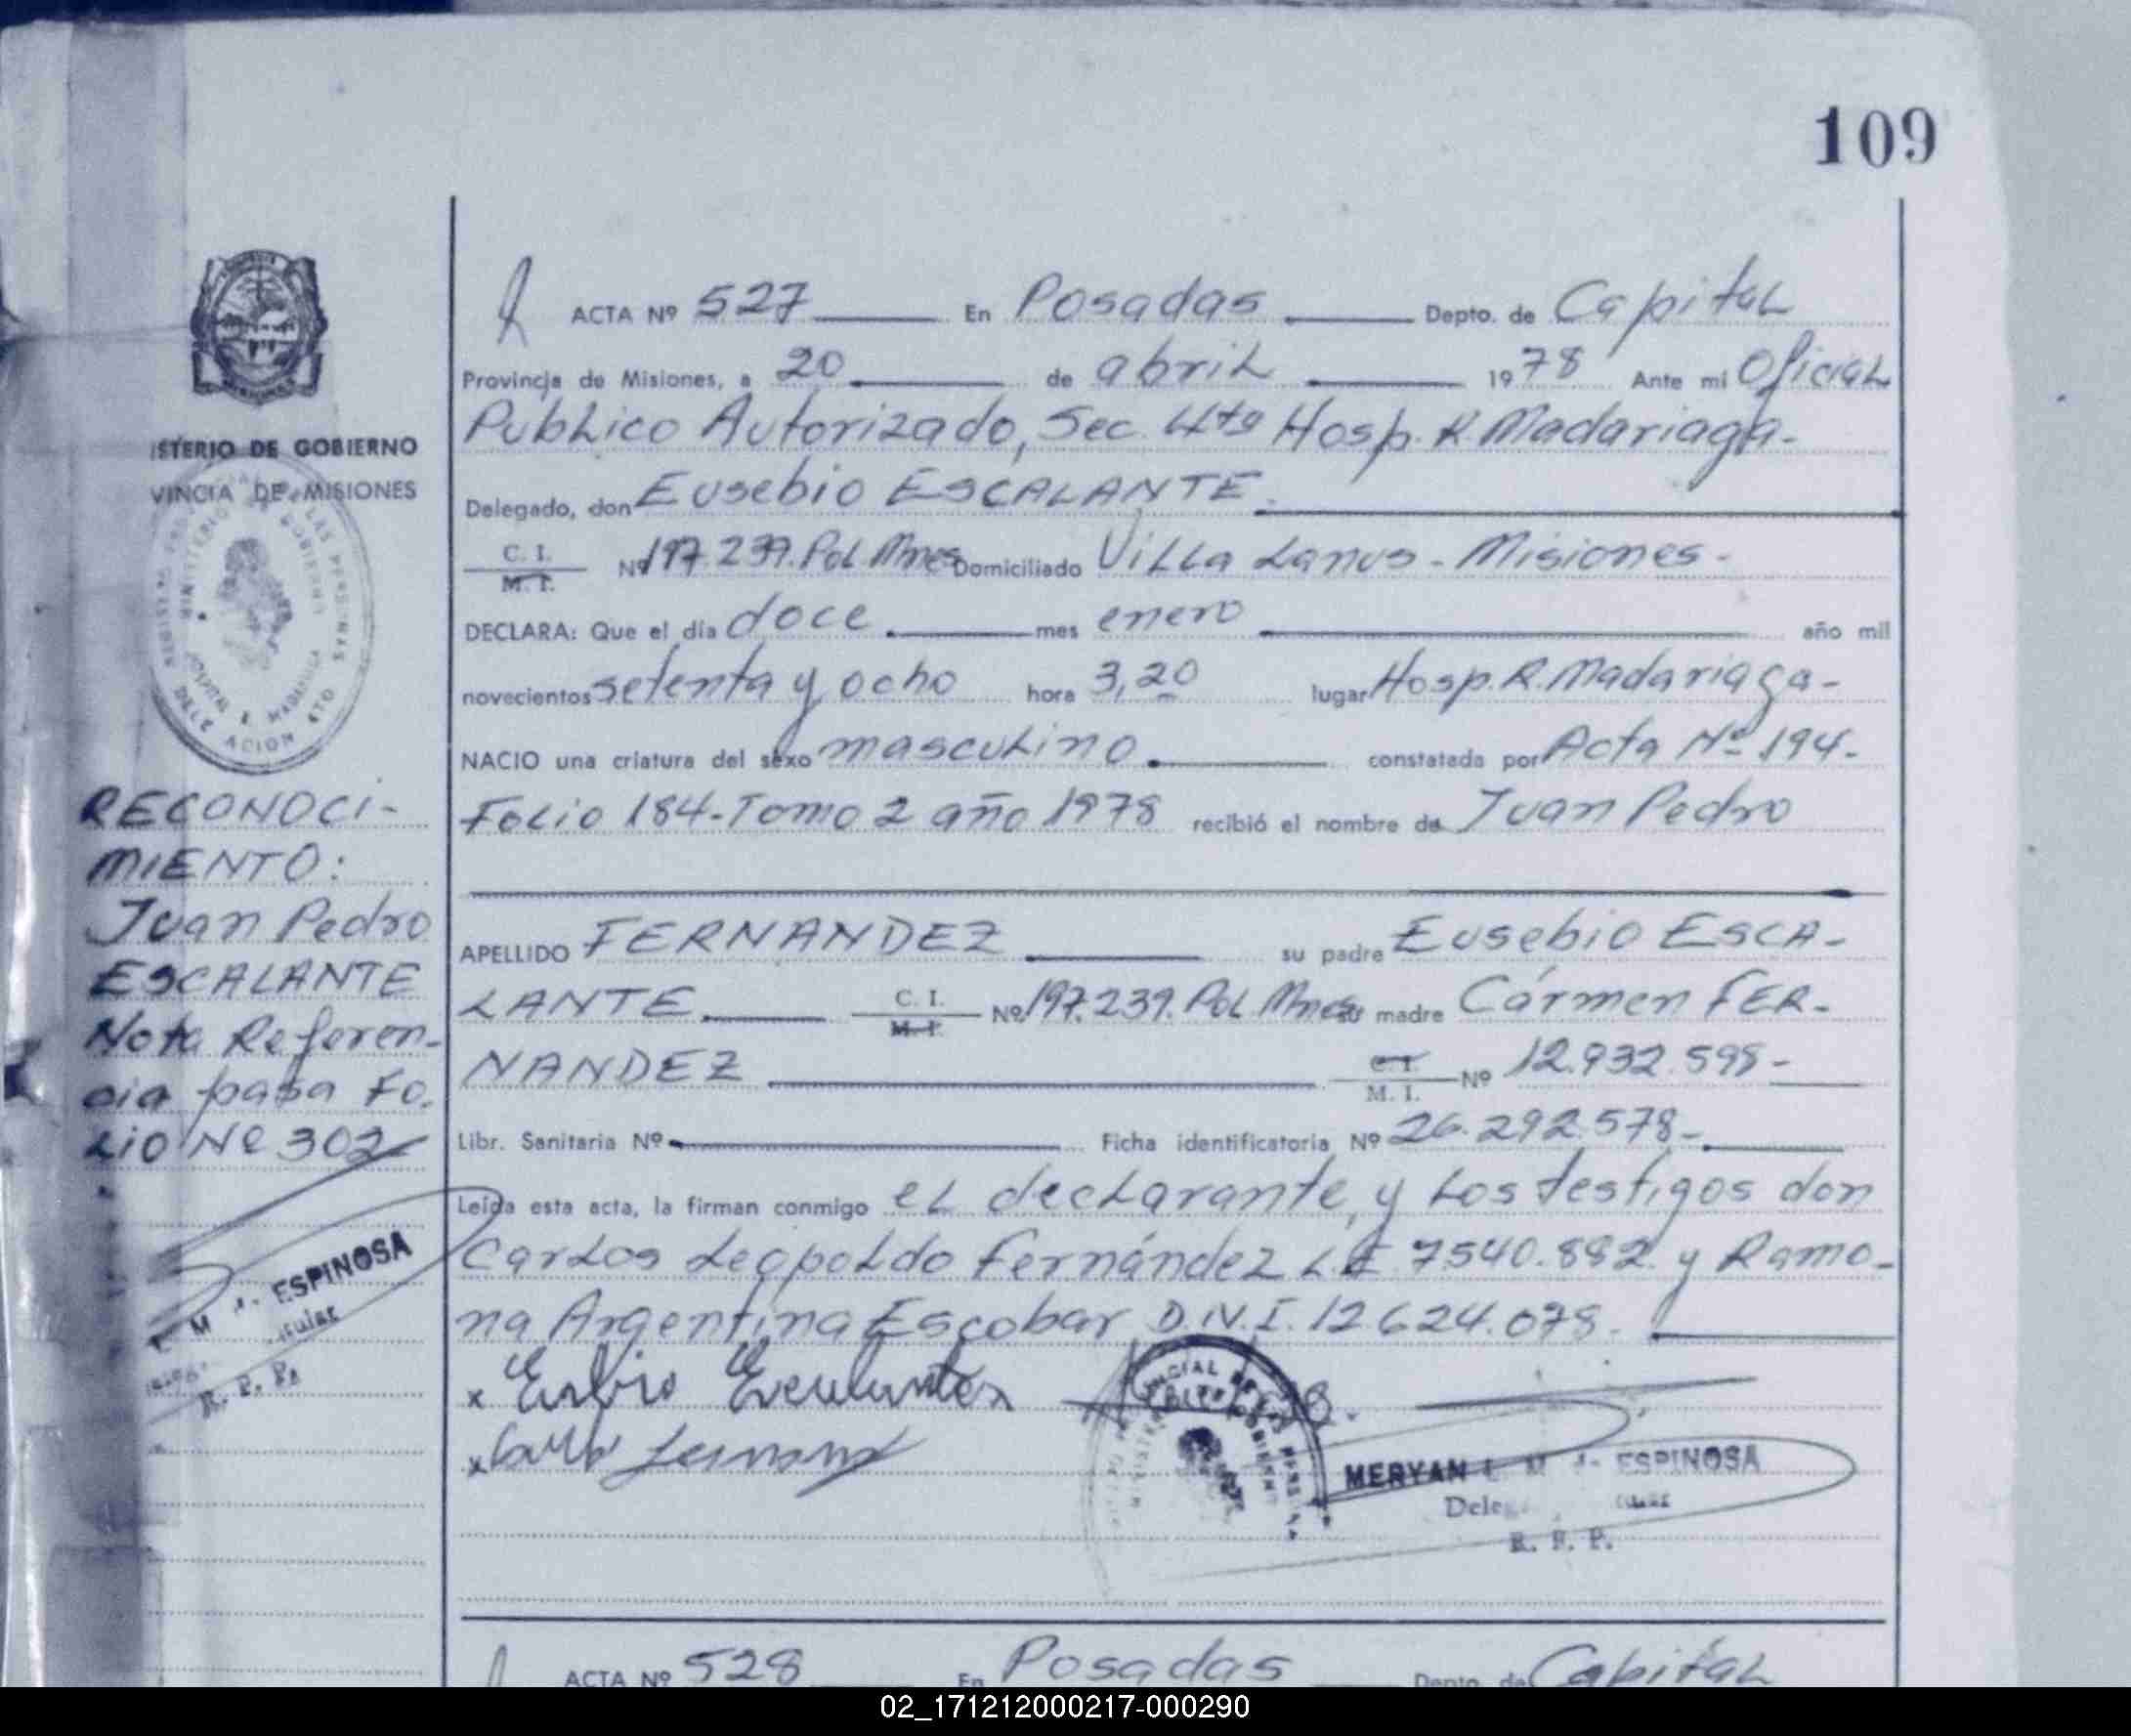 109
ACTA Nº 527 En Posadas Depto. de Capital
Provincia de Misiones, a 20 de abril 1978 Ante mi Oficial
Publico Autorizado, Sec. 4to Hosp. R. Madariaga.
Delegado, don Eusebio ESCALANTE.
C. I. M. I. Nº 197.239. Pol Mnes Domiciliado Villa Lanus - Misiones -
DECLARA: Que el día doce mes enero año mil
novecientos setenta y ocho hora 3,20 lugar Hosp. R. Madariaga -
NACIO una criatura del sexo masculino. constatada por Acta Nº 194-
Folio 184-Tomo 2 año 1978 recibió el nombre de Juan Pedro
APELLIDO FERNANDEZ su padre Eusebio ESCA-
LANTE C. I. M. I. Nº 197.239. Pol Mnes su madre Cármen FER-
NANDEZ C. I. M. I. Nº 12.932.598-
Libr. Sanitaria Nº Ficha identificatoria Nº 26.292.578-
Leída esta acta, la firman conmigo el declarante, y los testigos don
Carlos Leopoldo Fernández L.E 7540.882. y Ramo-
na Argentina Escobar D.N.I. 12624.078.
x
x
MERYAN ESPINOSA
R. P. P.
ISTERIO DE GOBIERNO
VINCIA DE MISIONES
RECONOCI-
MIENTO:
Juan Pedro
ESCALANTE
Nota Referen-
cia pasa Fo.
lio Nº 302
ESPINOSA
R. P. P.
ACTA Nº 528 En Posadas Depto. de Capital
02_171212000217-000290